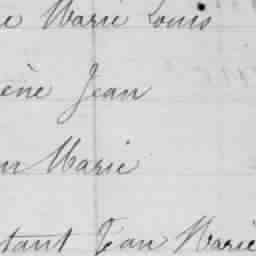 e Marie Louis
ène Jean
n Marie
tant Jean Marie